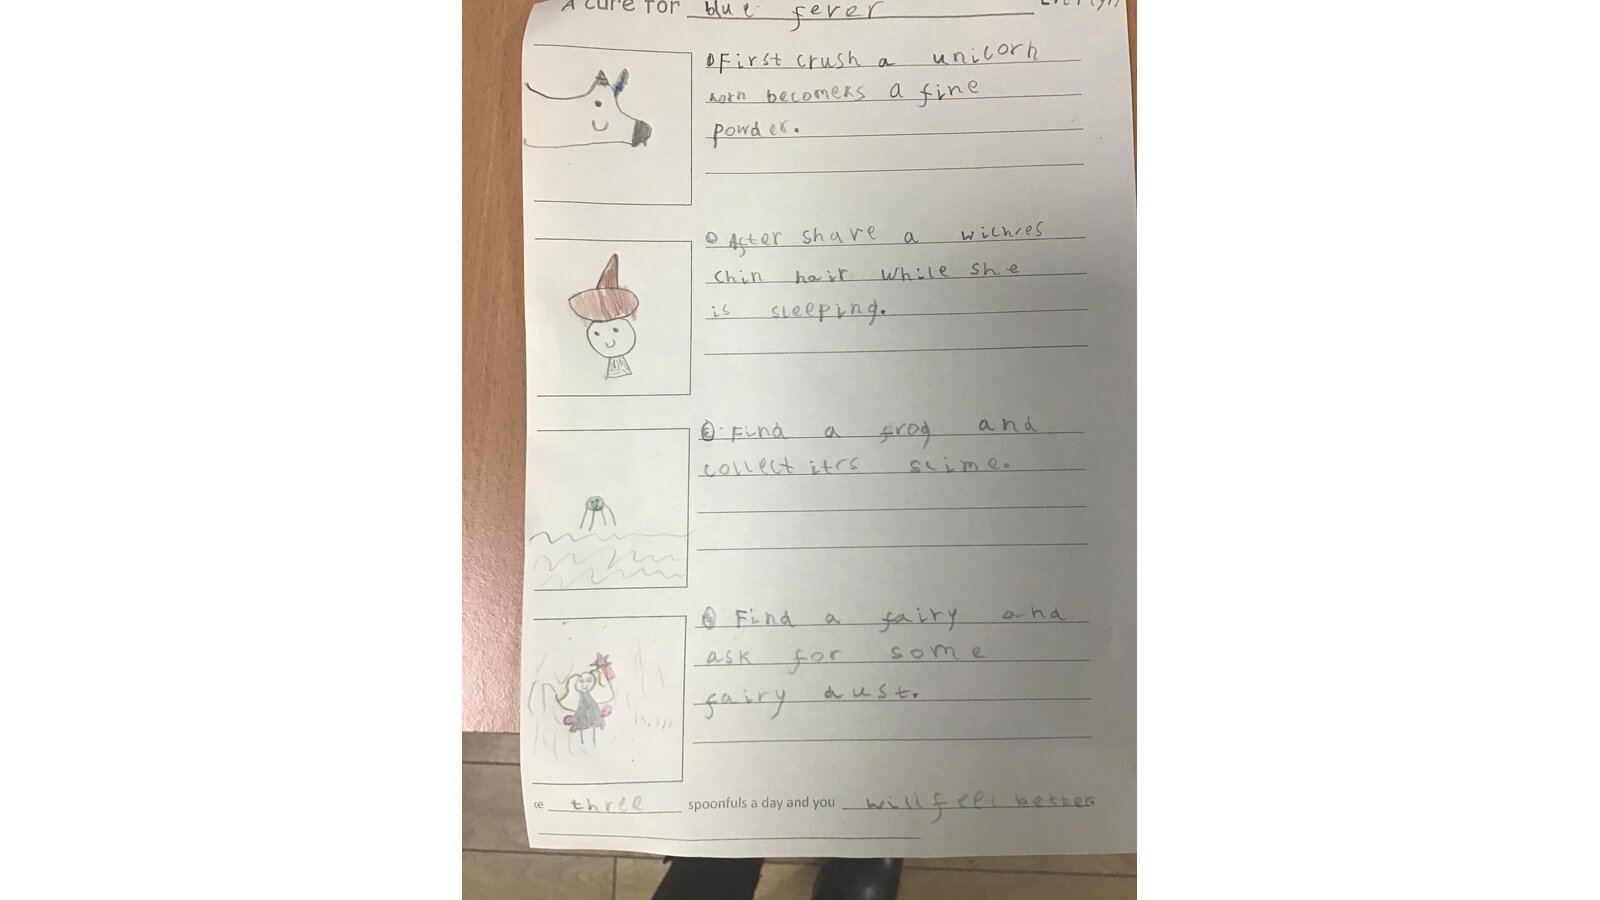 A cure for blue fever
① First crush a unicorn
horn becomeks a fine
powder.
After share a wichres
chin hair while she
is sleeping.
③: Find a frog and
collect itrs slime.
Find a fairy and
ask for some
fairy dust.
three spoonfuls a day and you will feel better